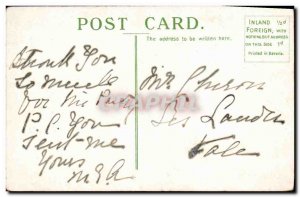 POST CARD.
The address to be written here.
INLAND ½d
FOREIGN, WITH
NOTHING BUT ADDRESS
ON THIS SIDE 1d
Printed in Bavaria.
Thank You
so much
for the Pretty
P.C. You
sent me
Yours
Mrs
Les Landes
Vale